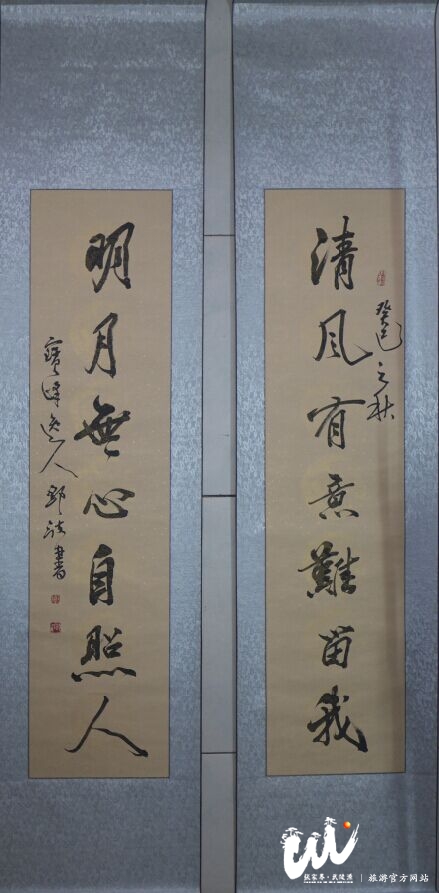 癸巳之秋
清风有意難留我
明月無心自照人
寶峰逸人 書
张家界·武陵源 | 旅游官方网站